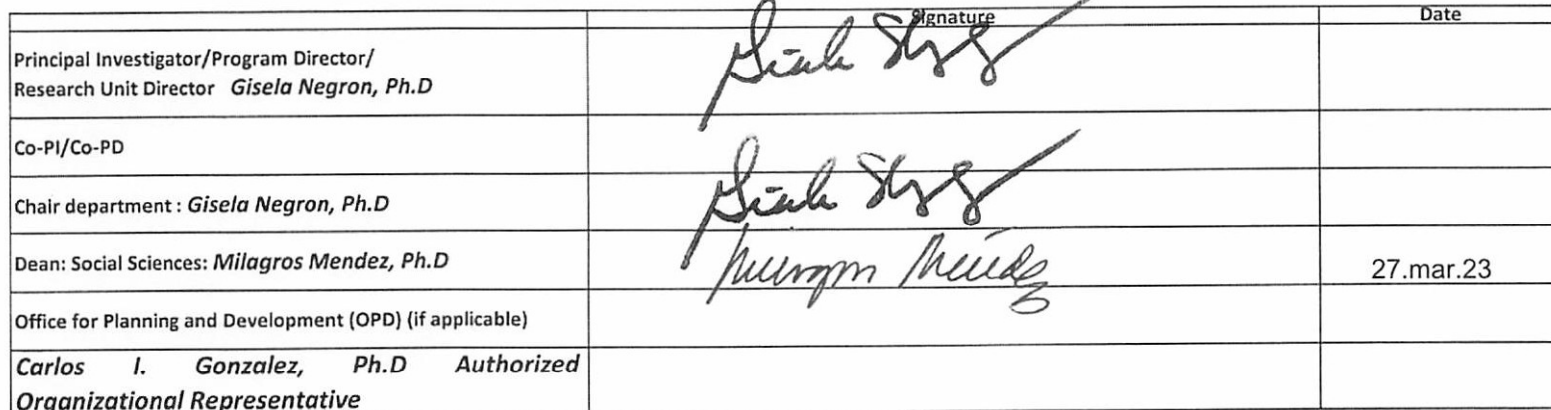 Signature Date
Principal Investigator/Program Director/
Research Unit Director Gisela Negron, Ph.D
Co-PI/Co-PD
Chair department : Gisela Negron, Ph.D
Dean: Social Sciences: Milagros Mendez, Ph.D 27.mar.23
Office for Planning and Development (OPD) (if applicable)
Carlos I. Gonzalez, Ph.D Authorized
Organizational Representative